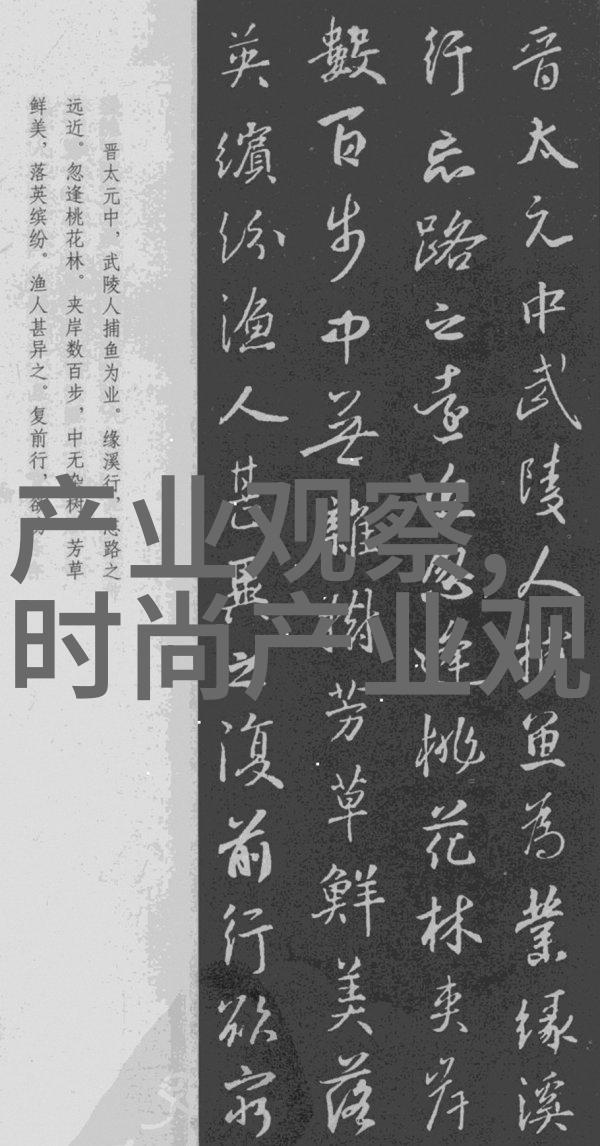 晋太元中武陵人捕鱼为業缘溪
行忘路之遠近忽逢桃花林夹岸
數百步中無雜樹芳草鮮美落
英繽纷漁人甚異之復前行欲穷
晋太元中，武陵人捕鱼为业。缘溪行，忘路之
远近。忽逢桃花林。夹岸数百步，中无杂树，芳草
鲜美，落英缤纷。渔人甚异之。复前行，欲穷
产业观察,
时尚产业观